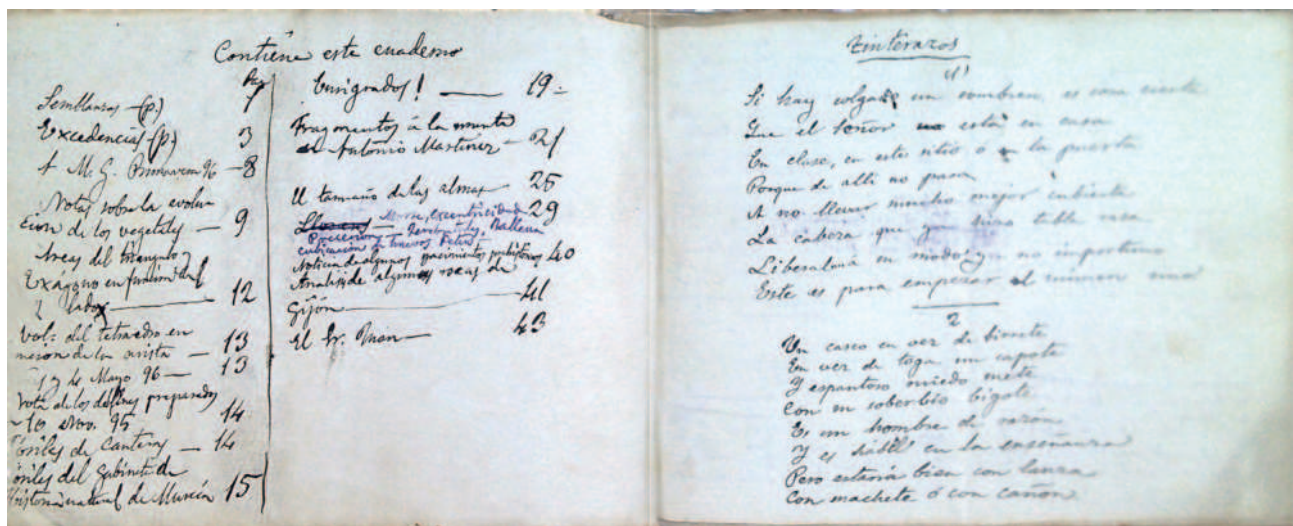 Contiene este cuaderno
Pag
Semblanzas — (p.) 1
Excedencias (p) 3
A M. G. 96 — 8
Notas sobre la evolu
cion de los vegetales — 9
Areas del triangulo y
Exágono en funcion del
lado — 12
Vol. del tetraedro en
de la arista — 13
y de Mayo 96 — 13
Nota de los preparados
10 Nov. 95 14
de Canteras — 14
del Gabinete de
Historia natural de Murcia 15
¡ ! — 19
Fragmentos á la muerte
de Antonio Martinez — 21
El tamaño de las almas 25
excentricidad 29
Precesion — Ballena
cubicacion de huevos
Noticia de algunos yacimientos prehistóricos 40
Analisis de algunas rocas de
Gijón — 41
El Sr. — 43
Tinterazos
(1)
Si hay colgado un sombrero, es cosa cierta
Que el Señor no está en casa
En clase, en este sitio ó en la puerta
Porque de alli no pasa
A no llevar mucho mejor cubierta
La cabeza que tabla rasa
en modo no importuno
Este es para empezar el número uno
2
Un casco en vez de birrete
En vez de toga un capote
Y espantoso miedo mete
Con su soberbio bigote
Es un hombre de razón
Y es hábil en la enseñanza
Pero estaria bien con lanza
Con machete ó con cañon